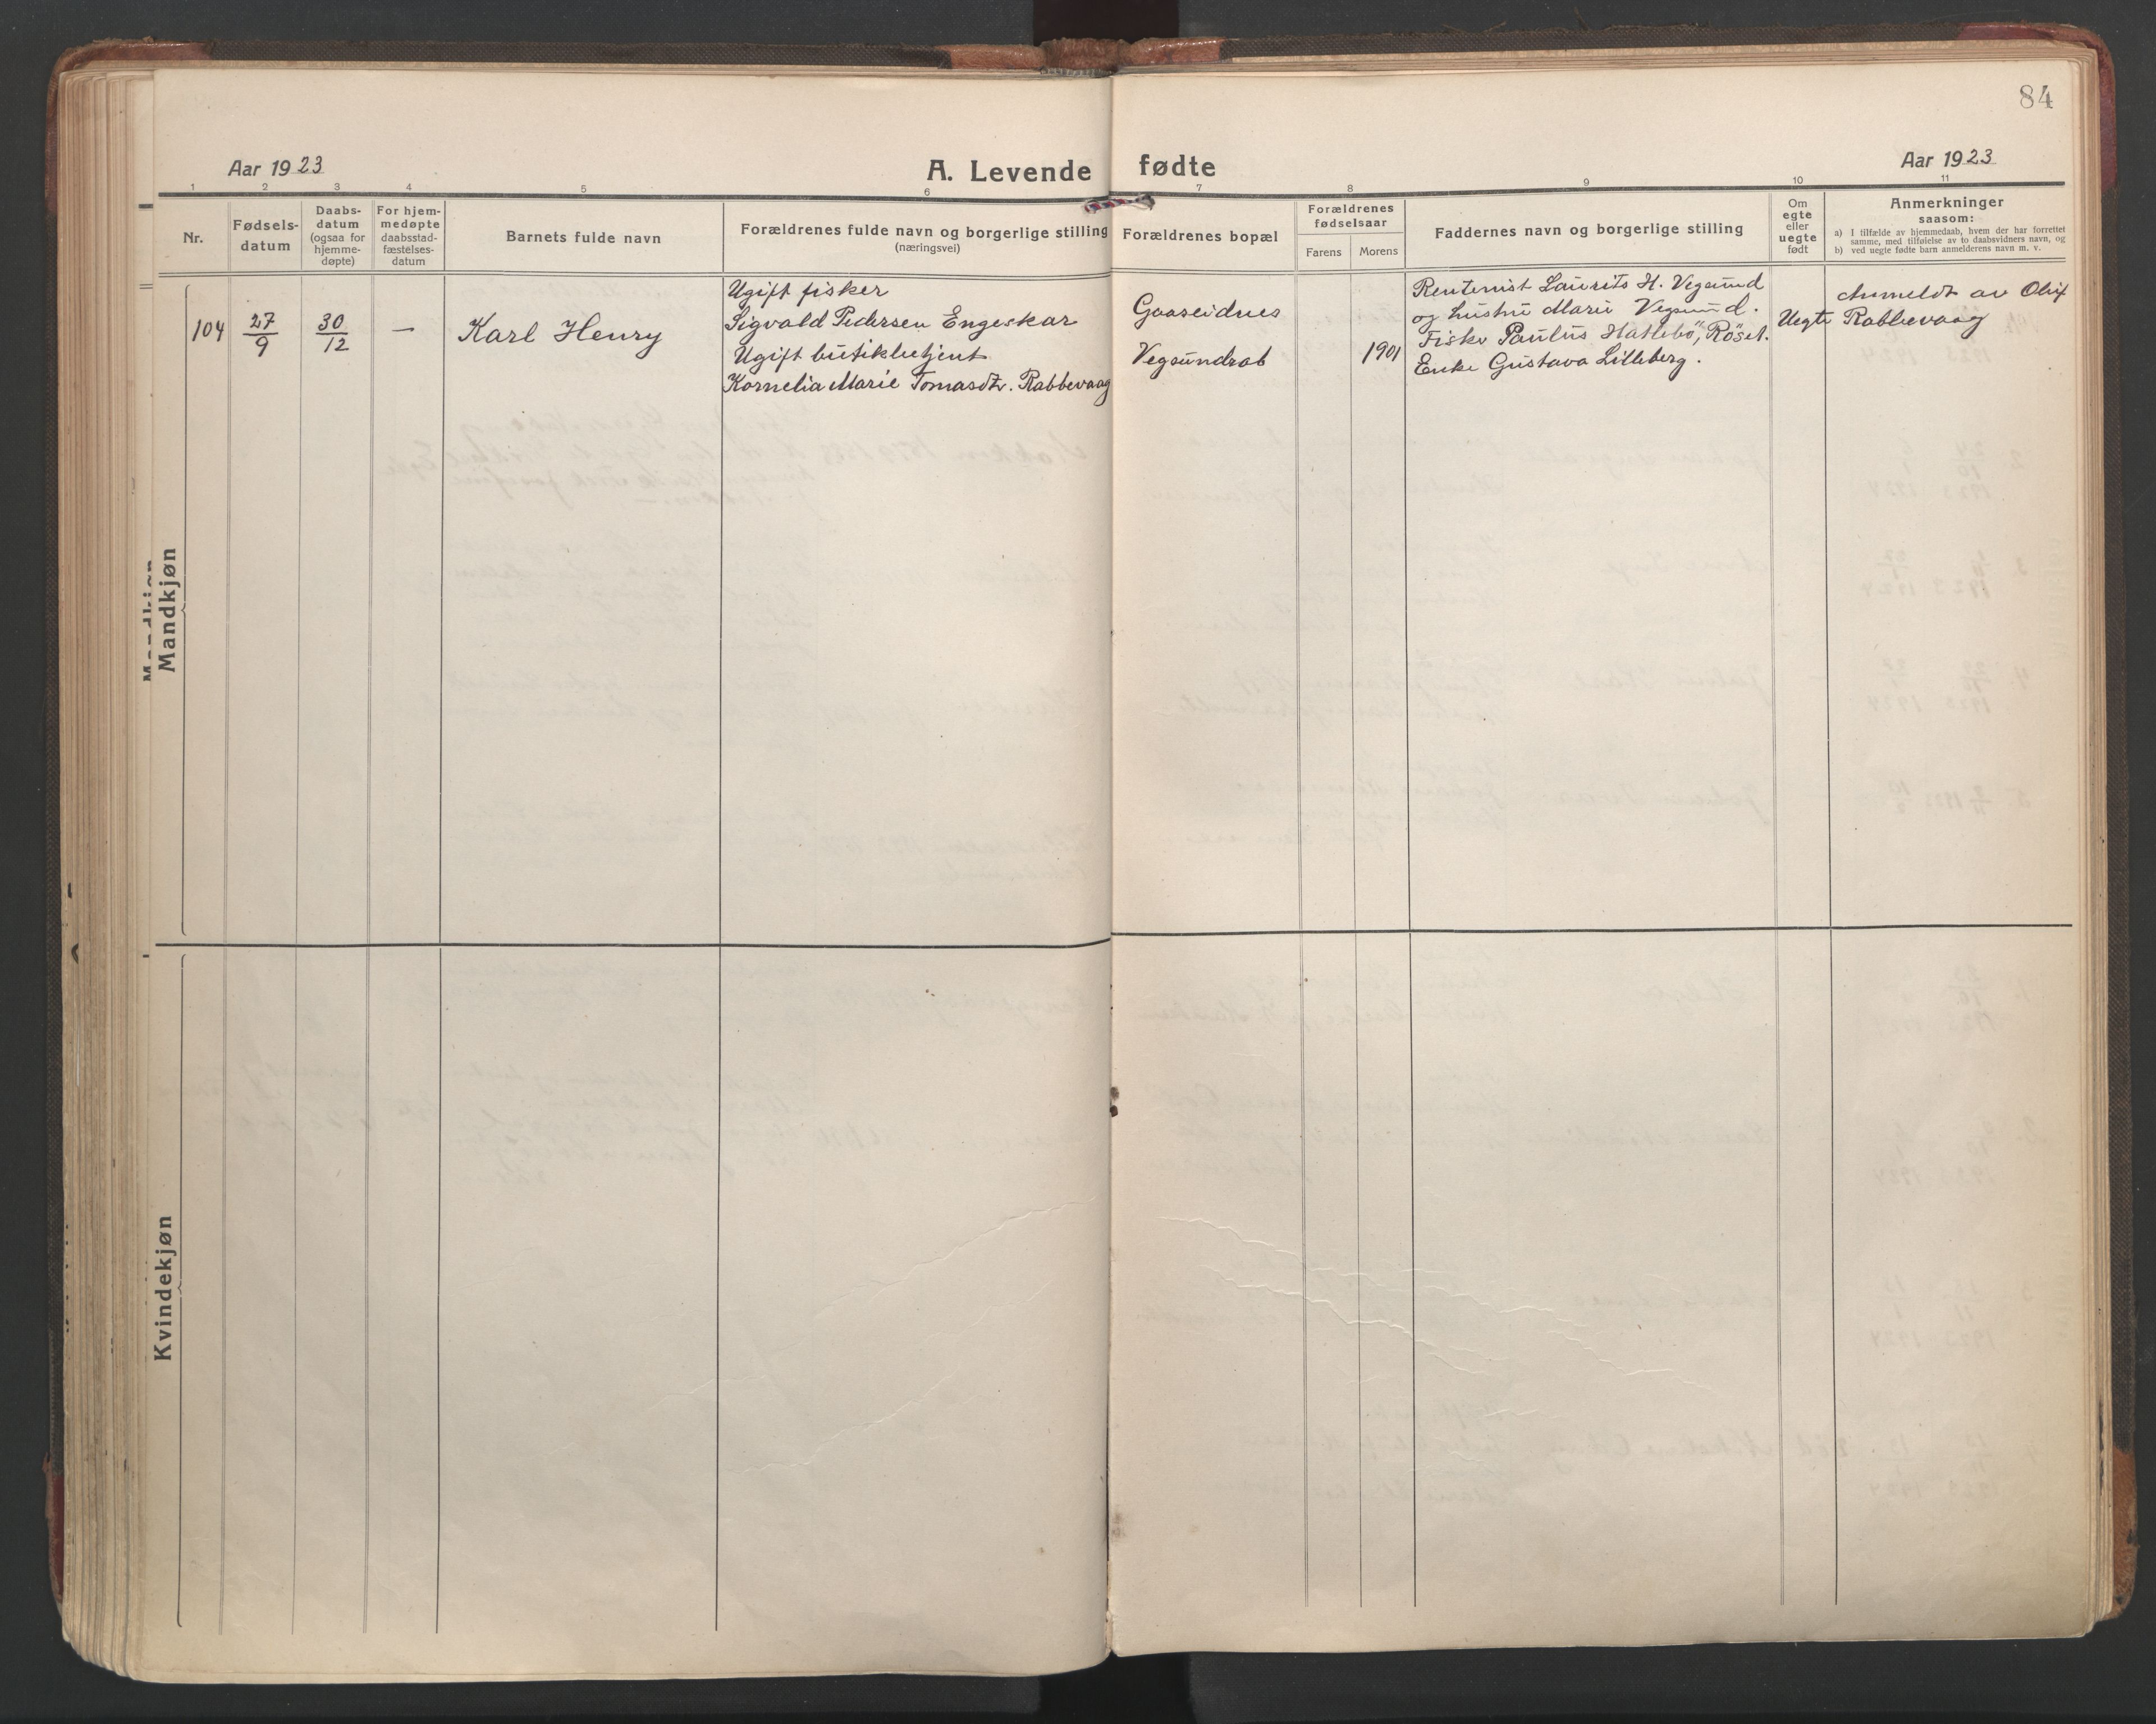 84
Aar 1923
A. Levende fødte
Aar 1923
1 2 3 4 5 6 7 8 9 10 11
Nr.
Fødsels-
datum
Daabs-
datum
(ogsaa for
hjemme-
døpte)
For hjem-
medøpte
daabsstad-
fæstelses-
datum
Barnets fulde navn
Forældrenes fulde navn og borgerlige stilling
(næringsvei)
Forældrenes bopæl
Forældrenes
fødselsaar
Farens
Morens
Faddernes navn og borgerlige stilling
Om
egte
eller
uegte
født
Anmerkninger
saasom:
a) I tilfælde av hjemmedaab, hvem der har forrettet
samme, med tilføielse av to daabsvidners navn, og
b) ved uegte fødte barn anmelderens navn m. v.
Mandkjøn
104
27/9
30/12
—
Karl Henry
Ugift fisker
Sigvald Pedersen Engeskar
Ugift butikbetjent
Kornelia Marie Tomasdtr. Rabbevaag
Gaaseidnes
Vegsundrab
1901
Rentenist Laurits H. Vegsund
og hustru Marie Vegsund.
Fisker Paulus Hatlebö, Röset.
Enke Gustava Lilleberg.
Uegte
Anmeldt av
Rabbevaag
Kvindekjøn